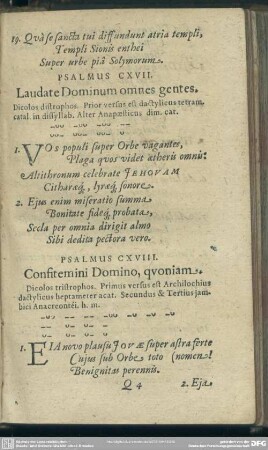 19. Quà se sancta tui diffundunt atria templi,
Templi Sionis enthei
Super urbe piâ Solymorum.
PSALMUS CXVII.
Laudate Dominum omnes gentes.
Dicolos distrophos. Prior versus est dactylicus tetram.
catal. in dissyllab. Alter Anapæsticus dim. cat.
1. VOs populi super Orbe vagantes,
Plaga quos videt ætheris omnis:
Altithronum celebrate JEHOVAM
Citharæq́, lyræq́, sonore.
2. Ejus enim miseratio summa
Bonitate fideq́, probata,
Secla per omnia dirigit almo
Sibi dedita pectora vero.
PSALMUS CXVIII.
Confitemini Domino, qvoniam.
Dicolos tristrophos. Primus versus est Archilochius
dactylicus heptameter acat. Secundus & Tertius jam-
bici Anacreontei. h. m.
1. EIA novo plausu JOVÆ super astra ferte
Cujus sub Orbe toto (nomen!
Benignitas perennis.
Q 4
2. Eja